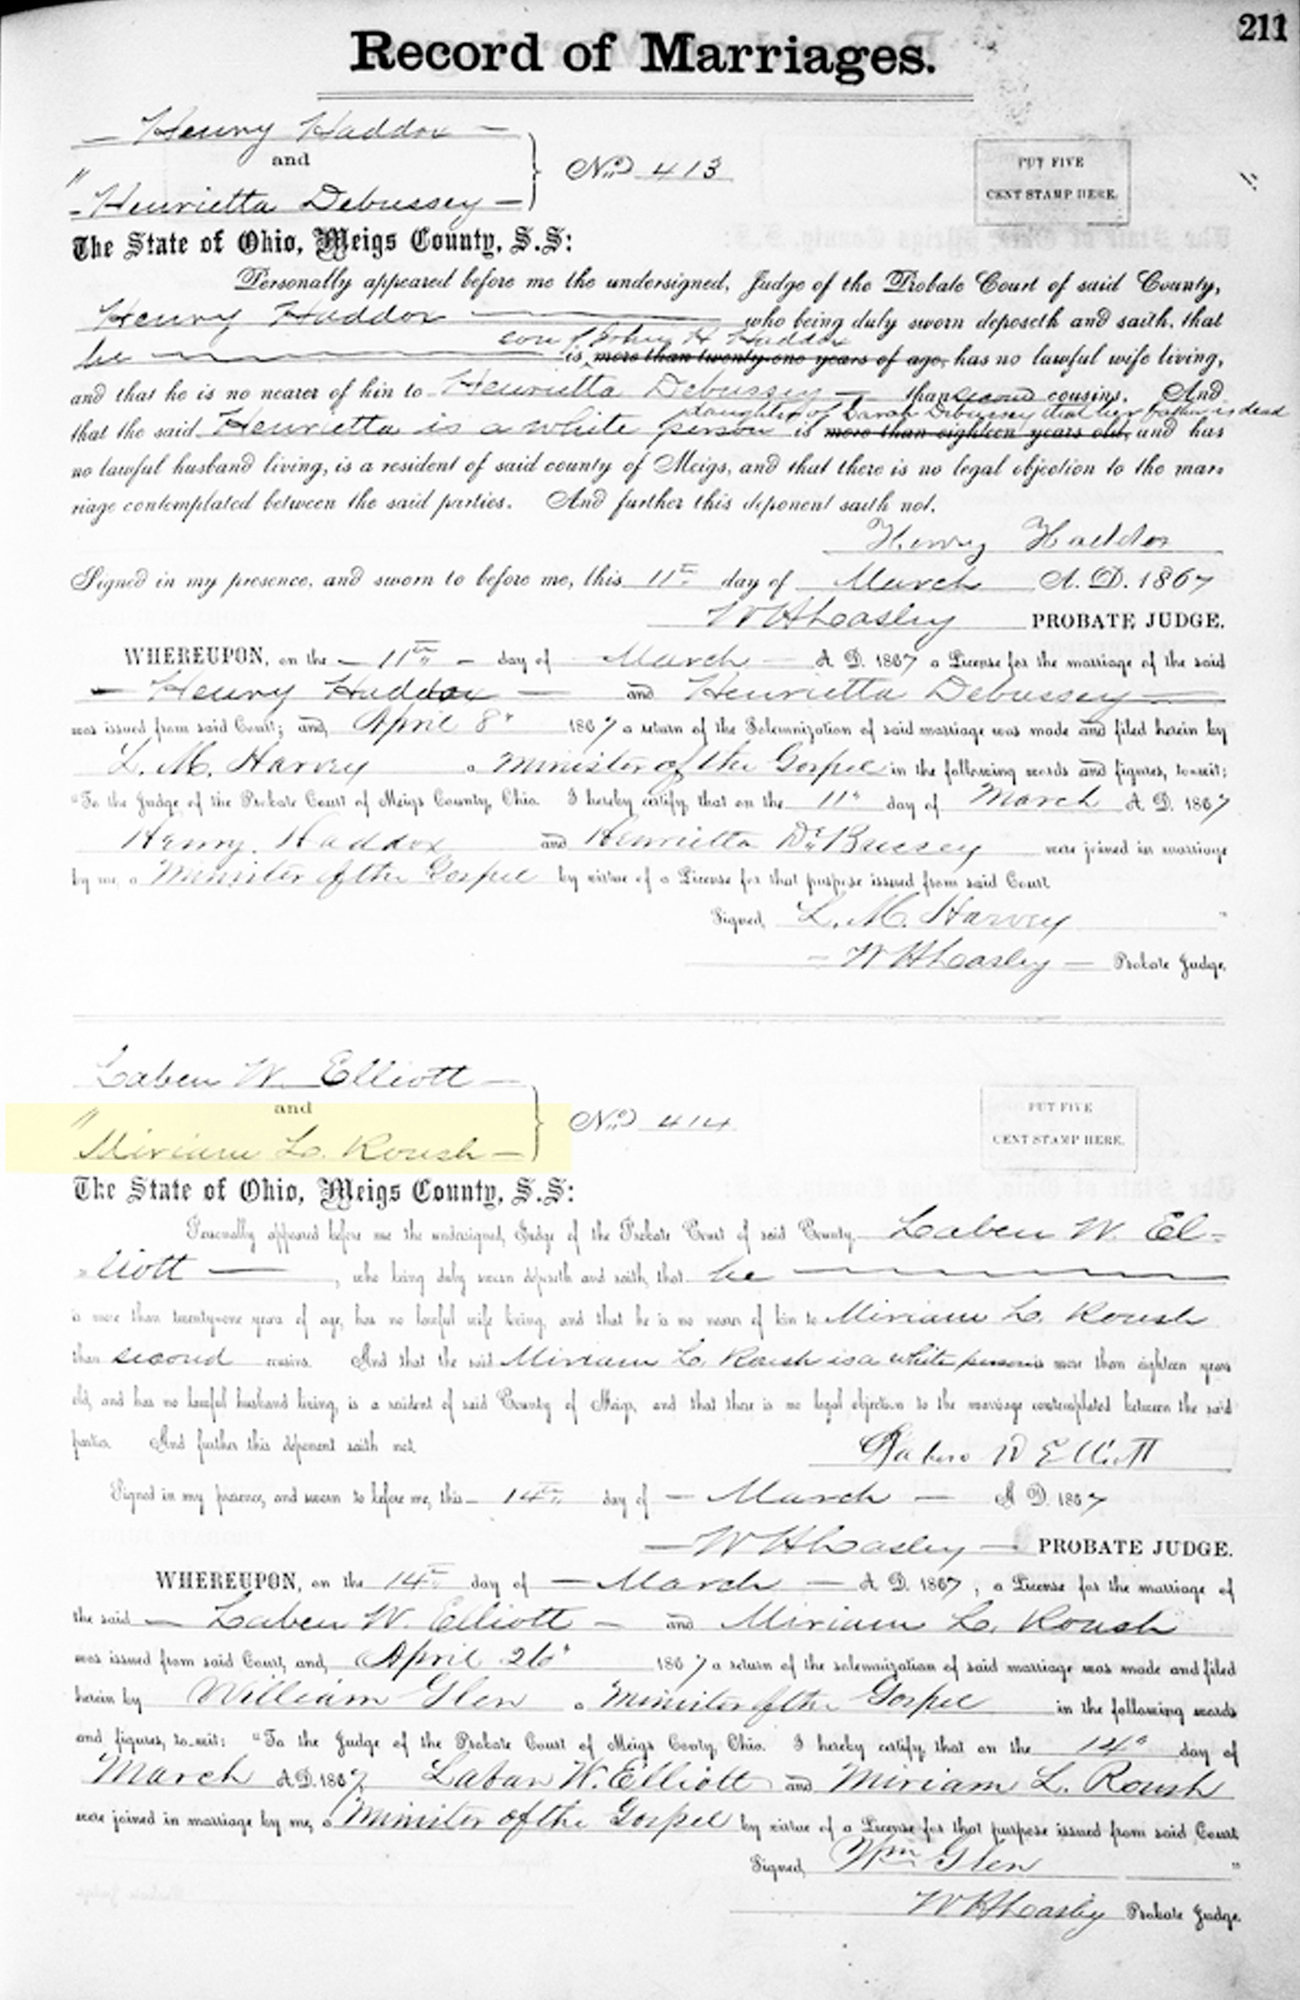 211
Record of Marriages.
Henry Haddox
and
" Henrietta Debussey
} No. 413
PUT FIVE
CENT STAMP HERE.
The State of Ohio, Meigs County, S.S:
Personally appeared before me the undersigned, Judge of the Probate Court of said County,
Henry Haddox who being duly sworn deposeth and saith, that
son of John H Haddox
he is more than twenty-one years of age, has no lawful wife living,
and that he is no nearer of kin to Henrietta Debussey than second cousins. And
daughter of Sarah Debussey that her father is dead
that the said Henrietta is a white person is more than eighteen years old, and has
no lawful husband living, is a resident of said county of Meigs, and that there is no legal objection to the mar-
riage contemplated between the said parties. And further this deponent saith not.
Henry Haddox
Signed in my presence, and sworn to before me, this 11th day of March A. D. 1867
W H Lasley PROBATE JUDGE.
WHEREUPON, on the 11th day of March A D. 1867 a License for the marriage of the said
Henry Haddox and Henrietta Debussey
was issued from said Court; and, April 8" 1867 a return of the Solemnization of said marriage was made and filed herein by
L. M. Harvey a Minister of the Gospel in the following words and figures, to-wit:
"To the Judge of the Probate Court of Meigs County, Ohio. I hereby certify, that on the 11" day of March A D. 1867
Henry Haddox and Henrietta DeBussey were joined in marriage
by me, a Minister of the Gospel by virtue of a License for that purpose issued from said Court.
Signed, L. M. Harvey "
W H Lasley Probate Judge.
Laben W. Elliott
and
" Miriam L. Roush
} No. 414
PUT FIVE
CENT STAMP HERE.
The State of Ohio, Meigs County, S.S:
Personally appeared before me the undersigned, Judge of the Probate Court of said County, Laben W. El-
liott , who being duly sworn deposeth and saith, that he
is more than twenty-one years of age, has no lawful wife living, and that he is no nearer of kin to Miriam L. Roush
than second cousins. And that the said Miriam L. Roush is a white person is more than eighteen years
old, and has no lawful husband living, is a resident of said County of Meigs, and that there is no legal objection to the marriage contemplated between the said
parties. And further this deponent saith not.
Laben W Elliott
Signed in my presence, and sworn to before me, this 14th day of March A D. 1867
W H Lasley PROBATE JUDGE.
WHEREUPON, on the 14th day of March A D. 1867, a License for the marriage of
the said Laben W. Elliott and Miriam L. Roush
was issued from said Court, and, April 26" 1867 a return of the solemnization of said marriage was made and filed
herein by William Glen a Minister of the Gospel in the following words
and figures, to-wit: "To the Judge of the Probate Court of Meigs Couty, Ohio. I hereby certify, that on the 14" day of
March A.D. 1867, Laban W. Elliott and Miriam L. Roush
were joined in marriage by me, a Minister of the Gospel by virtue of a License for that purpose issued from said Court
Signed, Wm Glen "
W H Lasley Probate Judge.